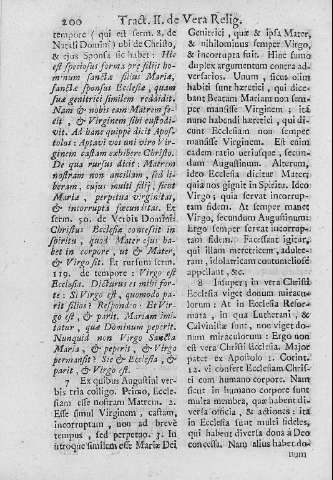 200 Tract. II. de Vera Relig.
tempore ( qui est serm. 8. de
Natali Domini ) ubi de Christo,
& ejus Sponsa sic habet: Hic
est speciosus forma præ filiis ho-
minum sanctæ filius Mariæ,
sanctæ sponsus Ecclesiæ, quam
suæ genitrici similem reddidit.
Nam & nobis eam Matrem fe-
cit, & Virginem sibi custodi-
vit. Ad hanc quippe dicit Apos-
tolus: Aptavi vos uni viro Vir-
ginem castam exhibere Christo.
De qua rursus dicit: Matrem
nostram non ancillam, sed li-
beram, cujus multi filii, sicut
Mariæ, perpetua virginitas,
& incorrupta fæcunditas. Ex
serm. 50. de Verbis Domini.
Christus Ecclesiæ concessit in
spiritu, quod Mater ejus ha-
bet in corpore, ut & Mater,
& Virgo sit. Et rursum serm.
119. de tempore: Virgo est
Ecclesia. Dicturus es mihi for-
te: Si Virgo est, quomodo pa-
rit filios? Respondo: Et Vir-
go est, & parit. Mariam imi-
tatur, quæ Dominum peperit.
Nunquid non Virgo Sancta
Maria, & peperit, & Virgo
permansit? Sic & Ecclesia, & pa-
rit, & Virgo est.
7 Ex quibus Augustini ver-
bis tria colligo. Primo, Eccle-
siam esse nostram Matrem. 2.
Esse simul Virginem, castam,
incorruptam, non ad breve
tempus, sed perpetuo. 3. In
utroque similem esse Mariæ Dei
Genitrici, quæ & ipsa Mater,
& nihilominus semper Virgo,
& incorrupta fuit. Hinc sumo
duplex argumentum contra ad-
versarios. Unum, sicut olim
habiti sunt hæretici, qui dice-
bant Beatam Mariam non sem-
per mansisse Virginem; ita
nunc habendi hæretici, qui di-
cunt Ecclesiam non semper
mansisse Virginem. Est enim
eadem ratio utriusque, secun-
dum Augustinum. Alterum,
ideo Ecclesia dicitur Mater,
quia nos gignit in Spiritu. Ideo
Virgo; quia servat incorrup-
tam fidem. At semper manet
Virgo, secundum Augustinum:
Ergo semper servat incorrup-
tam fidem. Facessant igitur,
qui illam meretricem, adulte-
ram, idololatriam contendunt
appellari, &c.
8 Insuper; in vera Christi
Ecclesia viget donum miracu-
lorum: At in Ecclesia Refor-
mata, in qua Lutherani, &
Calvinistæ sunt, non viget do-
num miraculorum: Ergo non
est vera Christi Ecclesia. Major
patet ex Apostolo 1. Corint.
12. vi confert Ecclesiam Chris-
ti cum humano corpore. Nam
sicut in humano corpore sunt
multa membra, quæ habent di-
versa officia, & actiones: ita
in Ecclesia sunt multi fideles,
qui habent diversa dona à Deo
concessa. Nam alius habet do-
num